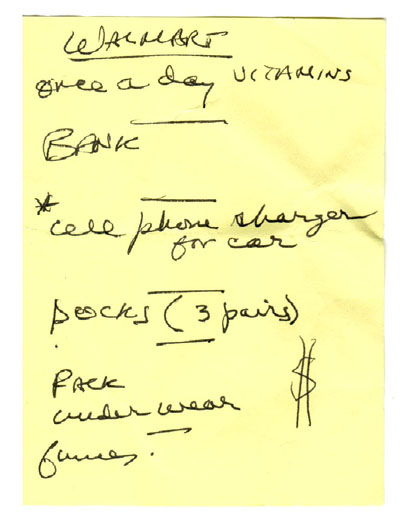 WALMART
once a day VITAMINS
BANK
* cell phone charger
for car
socks (3 pairs)
$
PACK
underwear